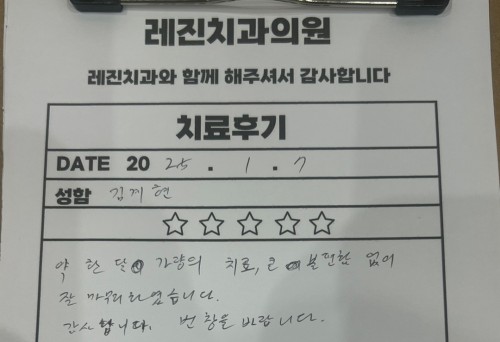 레진치과의원
레진치과와 함께 해주셔서 감사합니다
치료후기
DATE 20 25 . 1 . 7
성함 김지현
약 한 달 가량의 치료, 큰 불편함 없이
잘 마무리 하였습니다.
감사 합니다. 번창을 바랍니다.